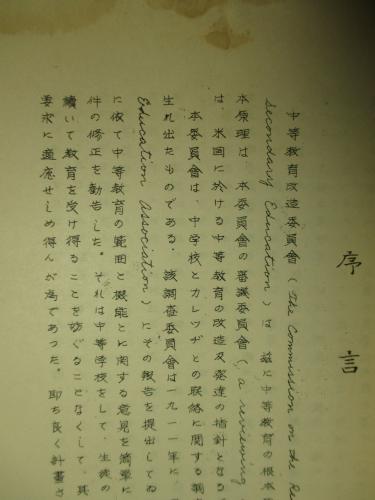 序言
中等教育改造委員會（The Commission on the R
Secondary Education）は 茲に中等教育の根本原
本原理は、本委員會の審議委員會（a reviewing
は、米国に於ける中等教育の改造及発達の指針となる
本委員會は、中学校とカレッヂとの聯絡に関する調
生れ出たものである。該調査委員會は一九一一年に、
Education Association）にその報告を提出してゐ
に依て中等教育の範囲と機能とに関する意見を簡単に
件の修正を勧告した。それは中等学校をして、生徒の
續いて教育を受け得ることを妨ぐることなくして、其
要求に適應せしめ得んが為であつた。即ち良く計畫さ